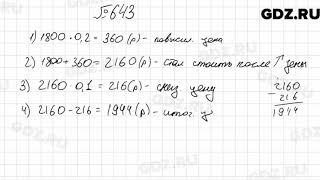 GDZ.RU
№643
1) 1800 · 0,2 = 360 (р) - повысил. цена
2) 1800 + 360 = 2160 (р) - стал стоить после ↑ цены
3) 2160 · 0,1 = 216 (р) - цену
4) 2160 - 216 = 1944 (р) - итог. ц
2160
- 216
1944